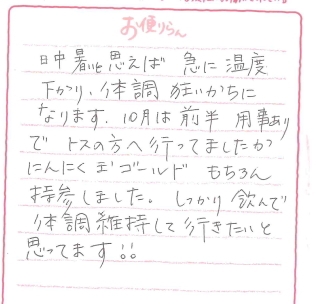 お便りらん
日中 暑いと思えば 急に 温度
下がり、体調 狂いがちに
なります。10月は前半 用事あり
で トスの方へ行ってましたが
にんにく玉ゴールド もちろん
持参しました。しっかり 飲んで
体調維持して行きたいと
思ってます!!